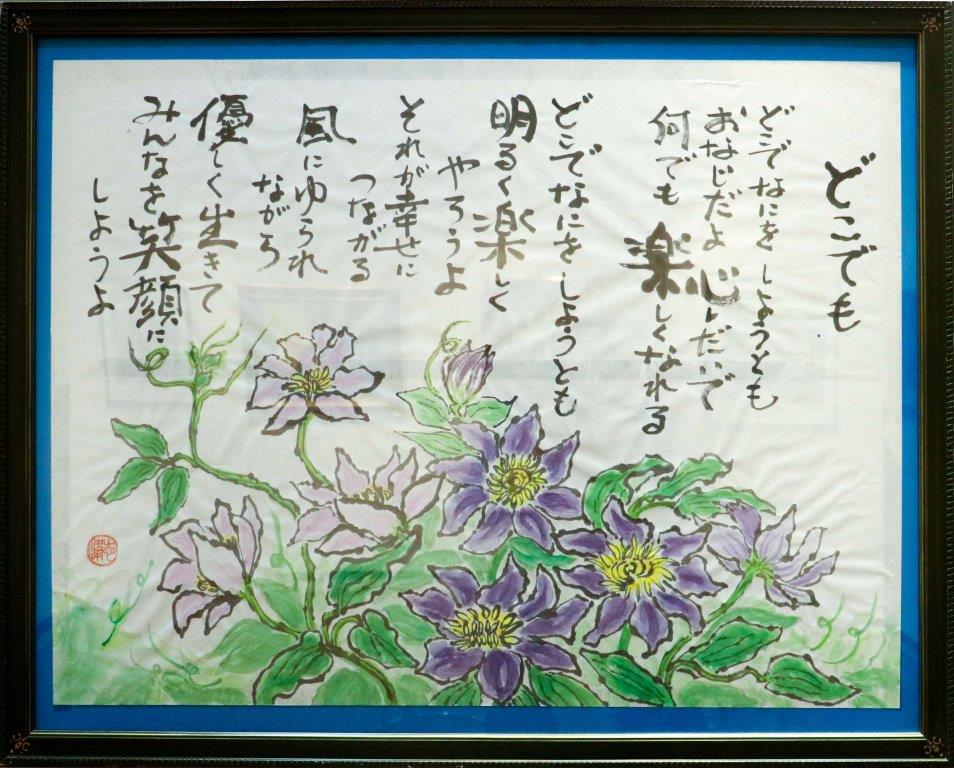 どこでも
どこでなにをしようとも
おなじだよ心しだいで
何でも楽しくなれる
どこでなにをしようとも
明るく楽しく
やろうよ
それが幸せに
つながる
風にゆられ
ながら
優しく生きて
みんなを笑顔に
しようよ